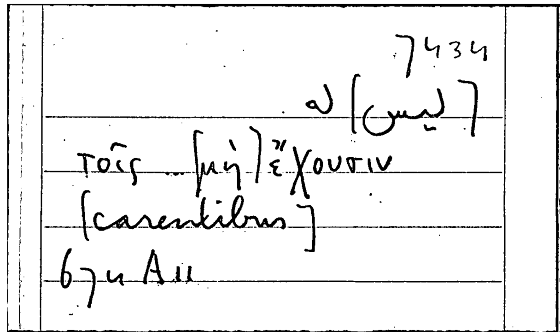 7434
[ليس]
τοῖς ... [μὴ] ἔχουσιν
[carentibus]
674 A11